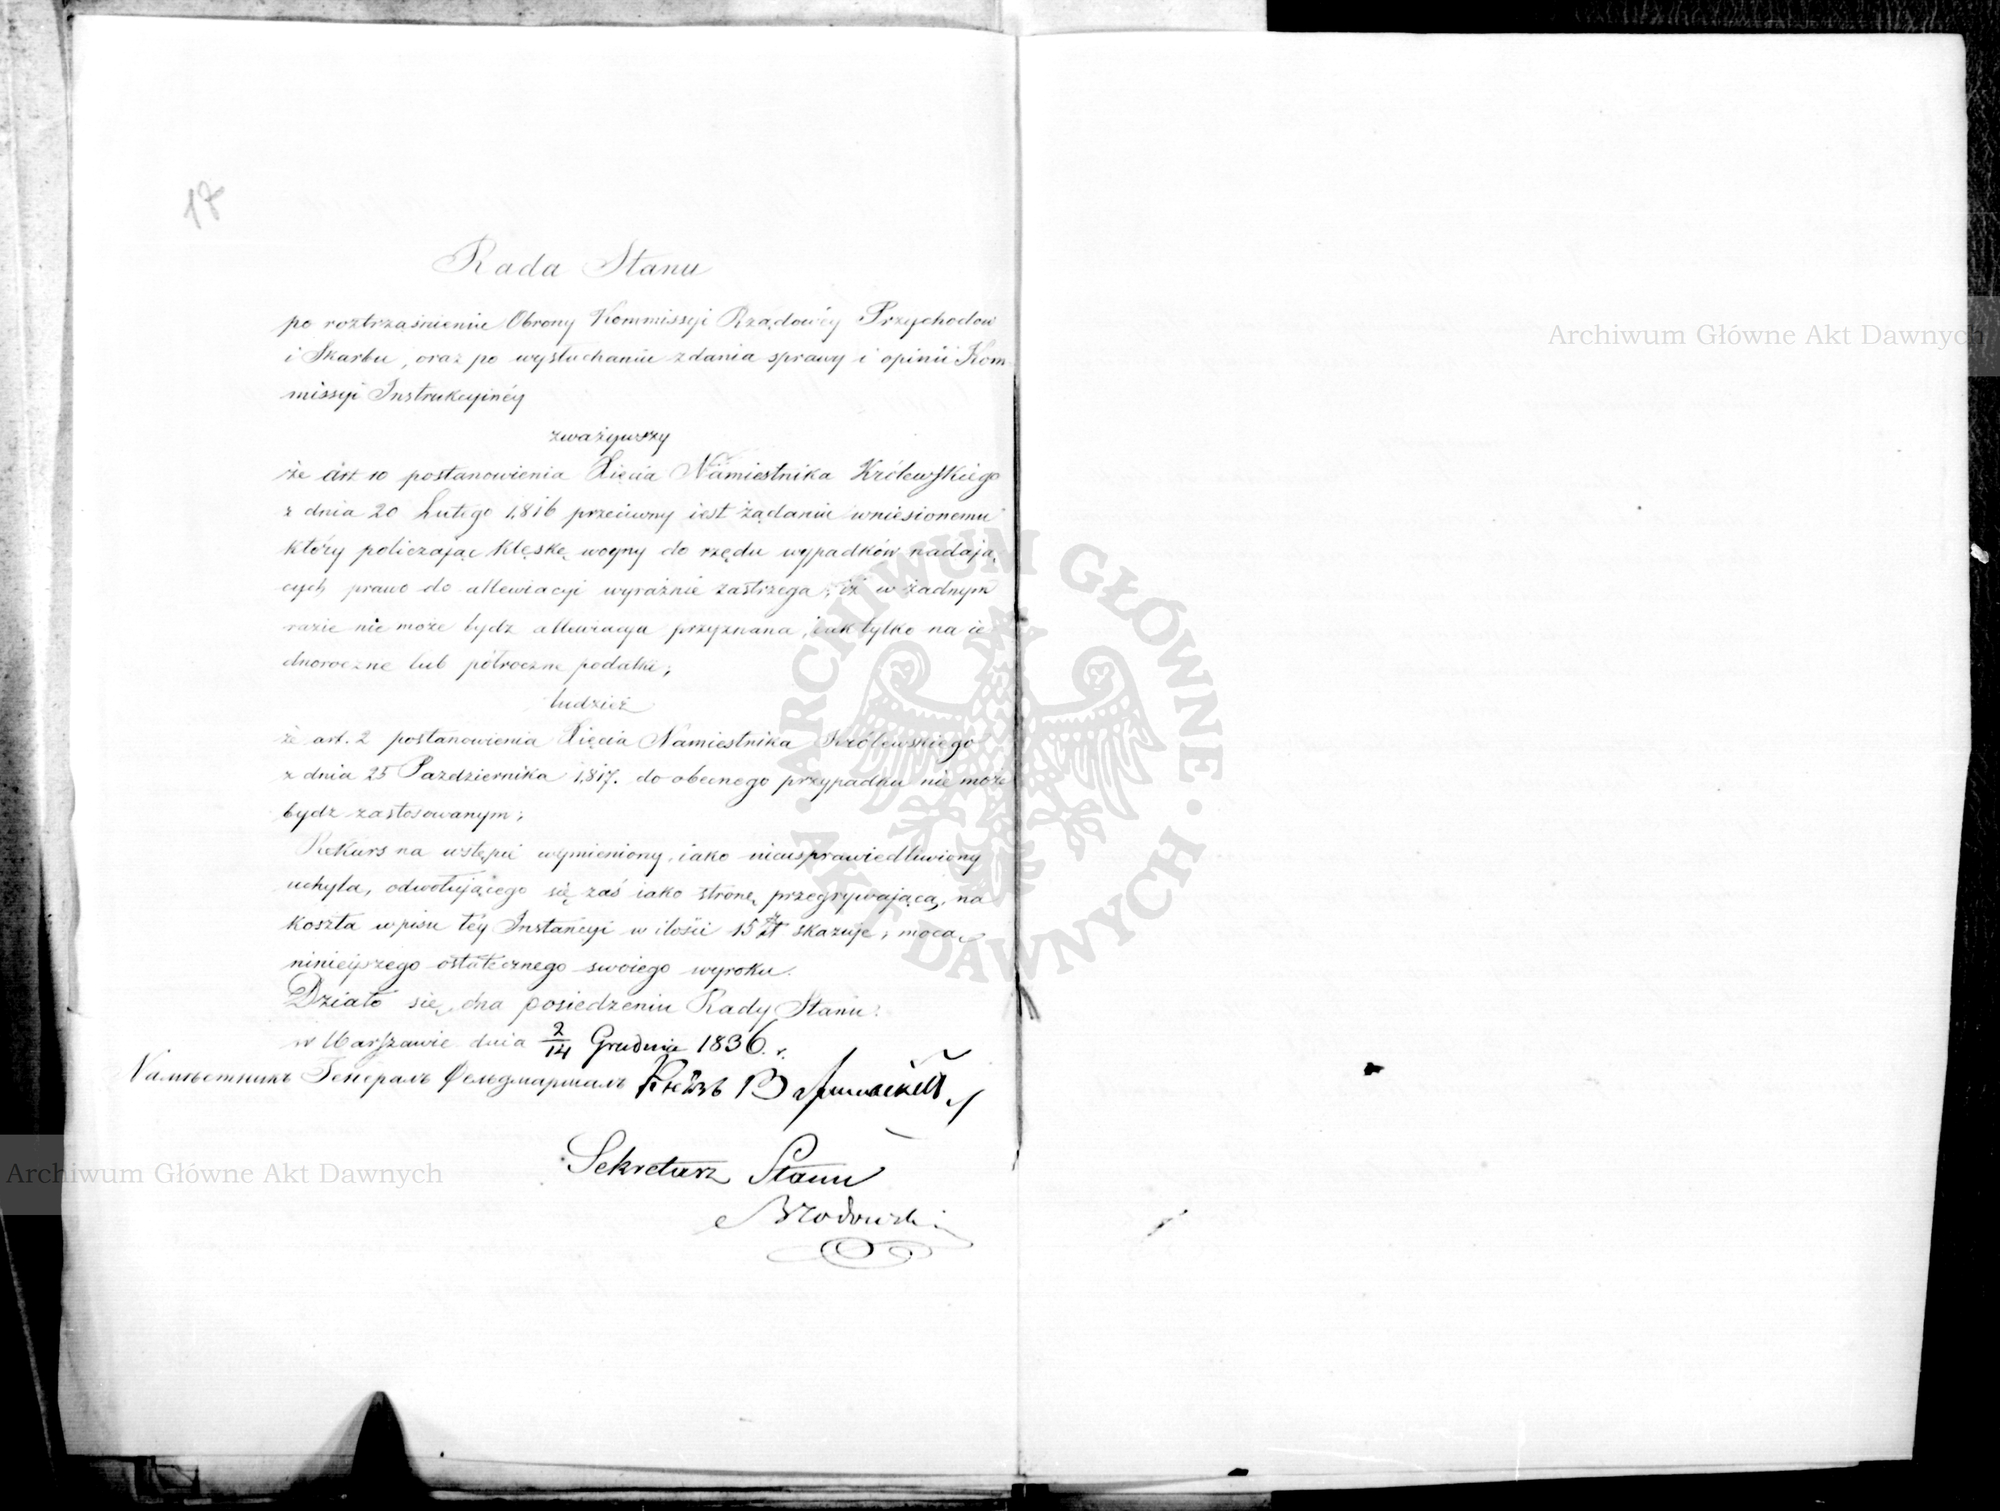 17
Rada Stanu
po roztrząśnieniu Obrony Kommissyi Rządowéy Przychodow
i Skarbu, oraz po wysłuchaniu zdania sprawy i opinii Kom-
missyi Instrukcyinéy
zważywszy
że art 10 postanowienia Xięcia Namiestnika Królewskiego
z dnia 20 Lutego 1816 przeciwny iest żądaniu wniesionemu
który policzając klęskę woyny do rzędu wypadków nadają
cych prawo do allewiacyi wyraźnie zastrzega, iż w żadnym
razie nie może bydz allewiacya przyznana, iak tylko na ie-
dnoroczne lub półroczne podatki;
tudzież
że art. 2 postanowienia Xięcia Namiestnika Królewskiego
z dnia 25 Pazdziernika 1817. do obecnego przypadku nie może
bydz zastosowanym;
Rekurs na wstępie wymieniony, iako nieusprawiedliwiony
uchyla, odwołującego się zaś iako stronę przegrywającą, na
koszta wpisu téy Instancyi w ilości 15 zł skazuje, mocą
ninieyszego ostatecznego swoiego wyroku.
Działo się na posiedzeniu Rady Stanu.
w Warszawie dnia 2/14 Grudnia 1836. r.
Намѣстникъ Генералъ Фельдмаршалъ Князь Варшавскій
Sekretarz Stanu
Brodowski
Archiwum Główne Akt Dawnych
Archiwum Główne Akt Dawnych
ARCHIWUM GŁÓWNE AKT DAWNYCH